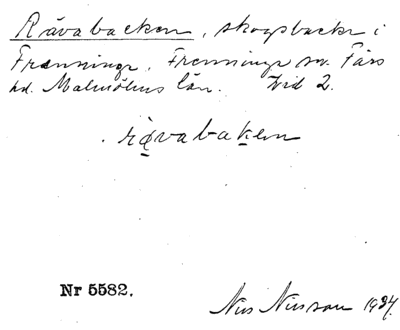 Rävabacken, skogsbacke i
Frenninge, Frenninge sn. Färs
hd. Malmöhus län. Vid 2.
rävabaken
Nr 5582.
Nils Nilsson 1934.